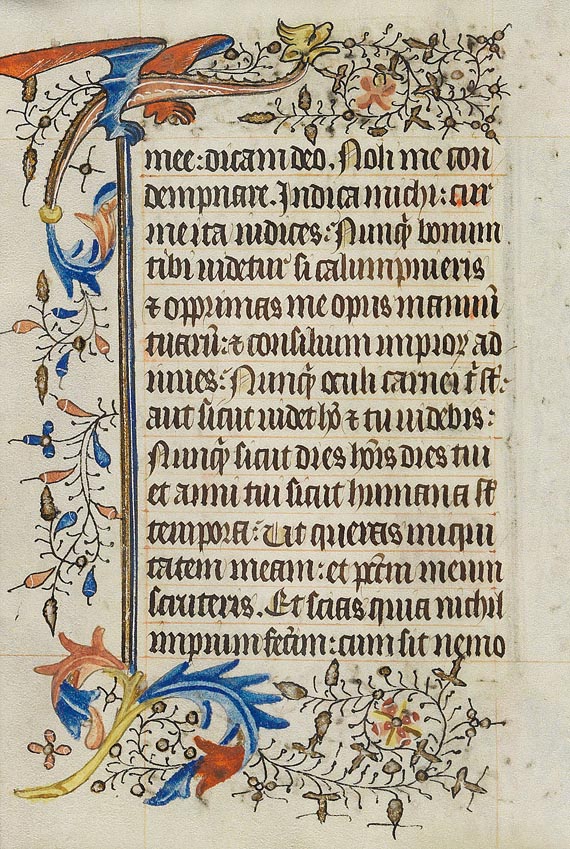 mee: dicam deo. Noli me con
dempnare. Indica michi: cur
me ita iudices: Nunq̃ bonum
tibi uidetur si calumpnieris
⁊ opprimas me opus manuũ
tuarũ: ⁊ consilium impioꝝ ad
iuues: Nunq̃ oculi carnei t̃ st̃:
aut sicut uidet hõ ⁊ tu uidebis:
Nunq̃ sicut dies hõis dies tui
et anni tui sicut humana st̃
tempora: Ut queras iniqui
tatem meam: et pctm̃ meum
scruteris. Et scias quia nichil
impium fecim̃: cum sit nemo